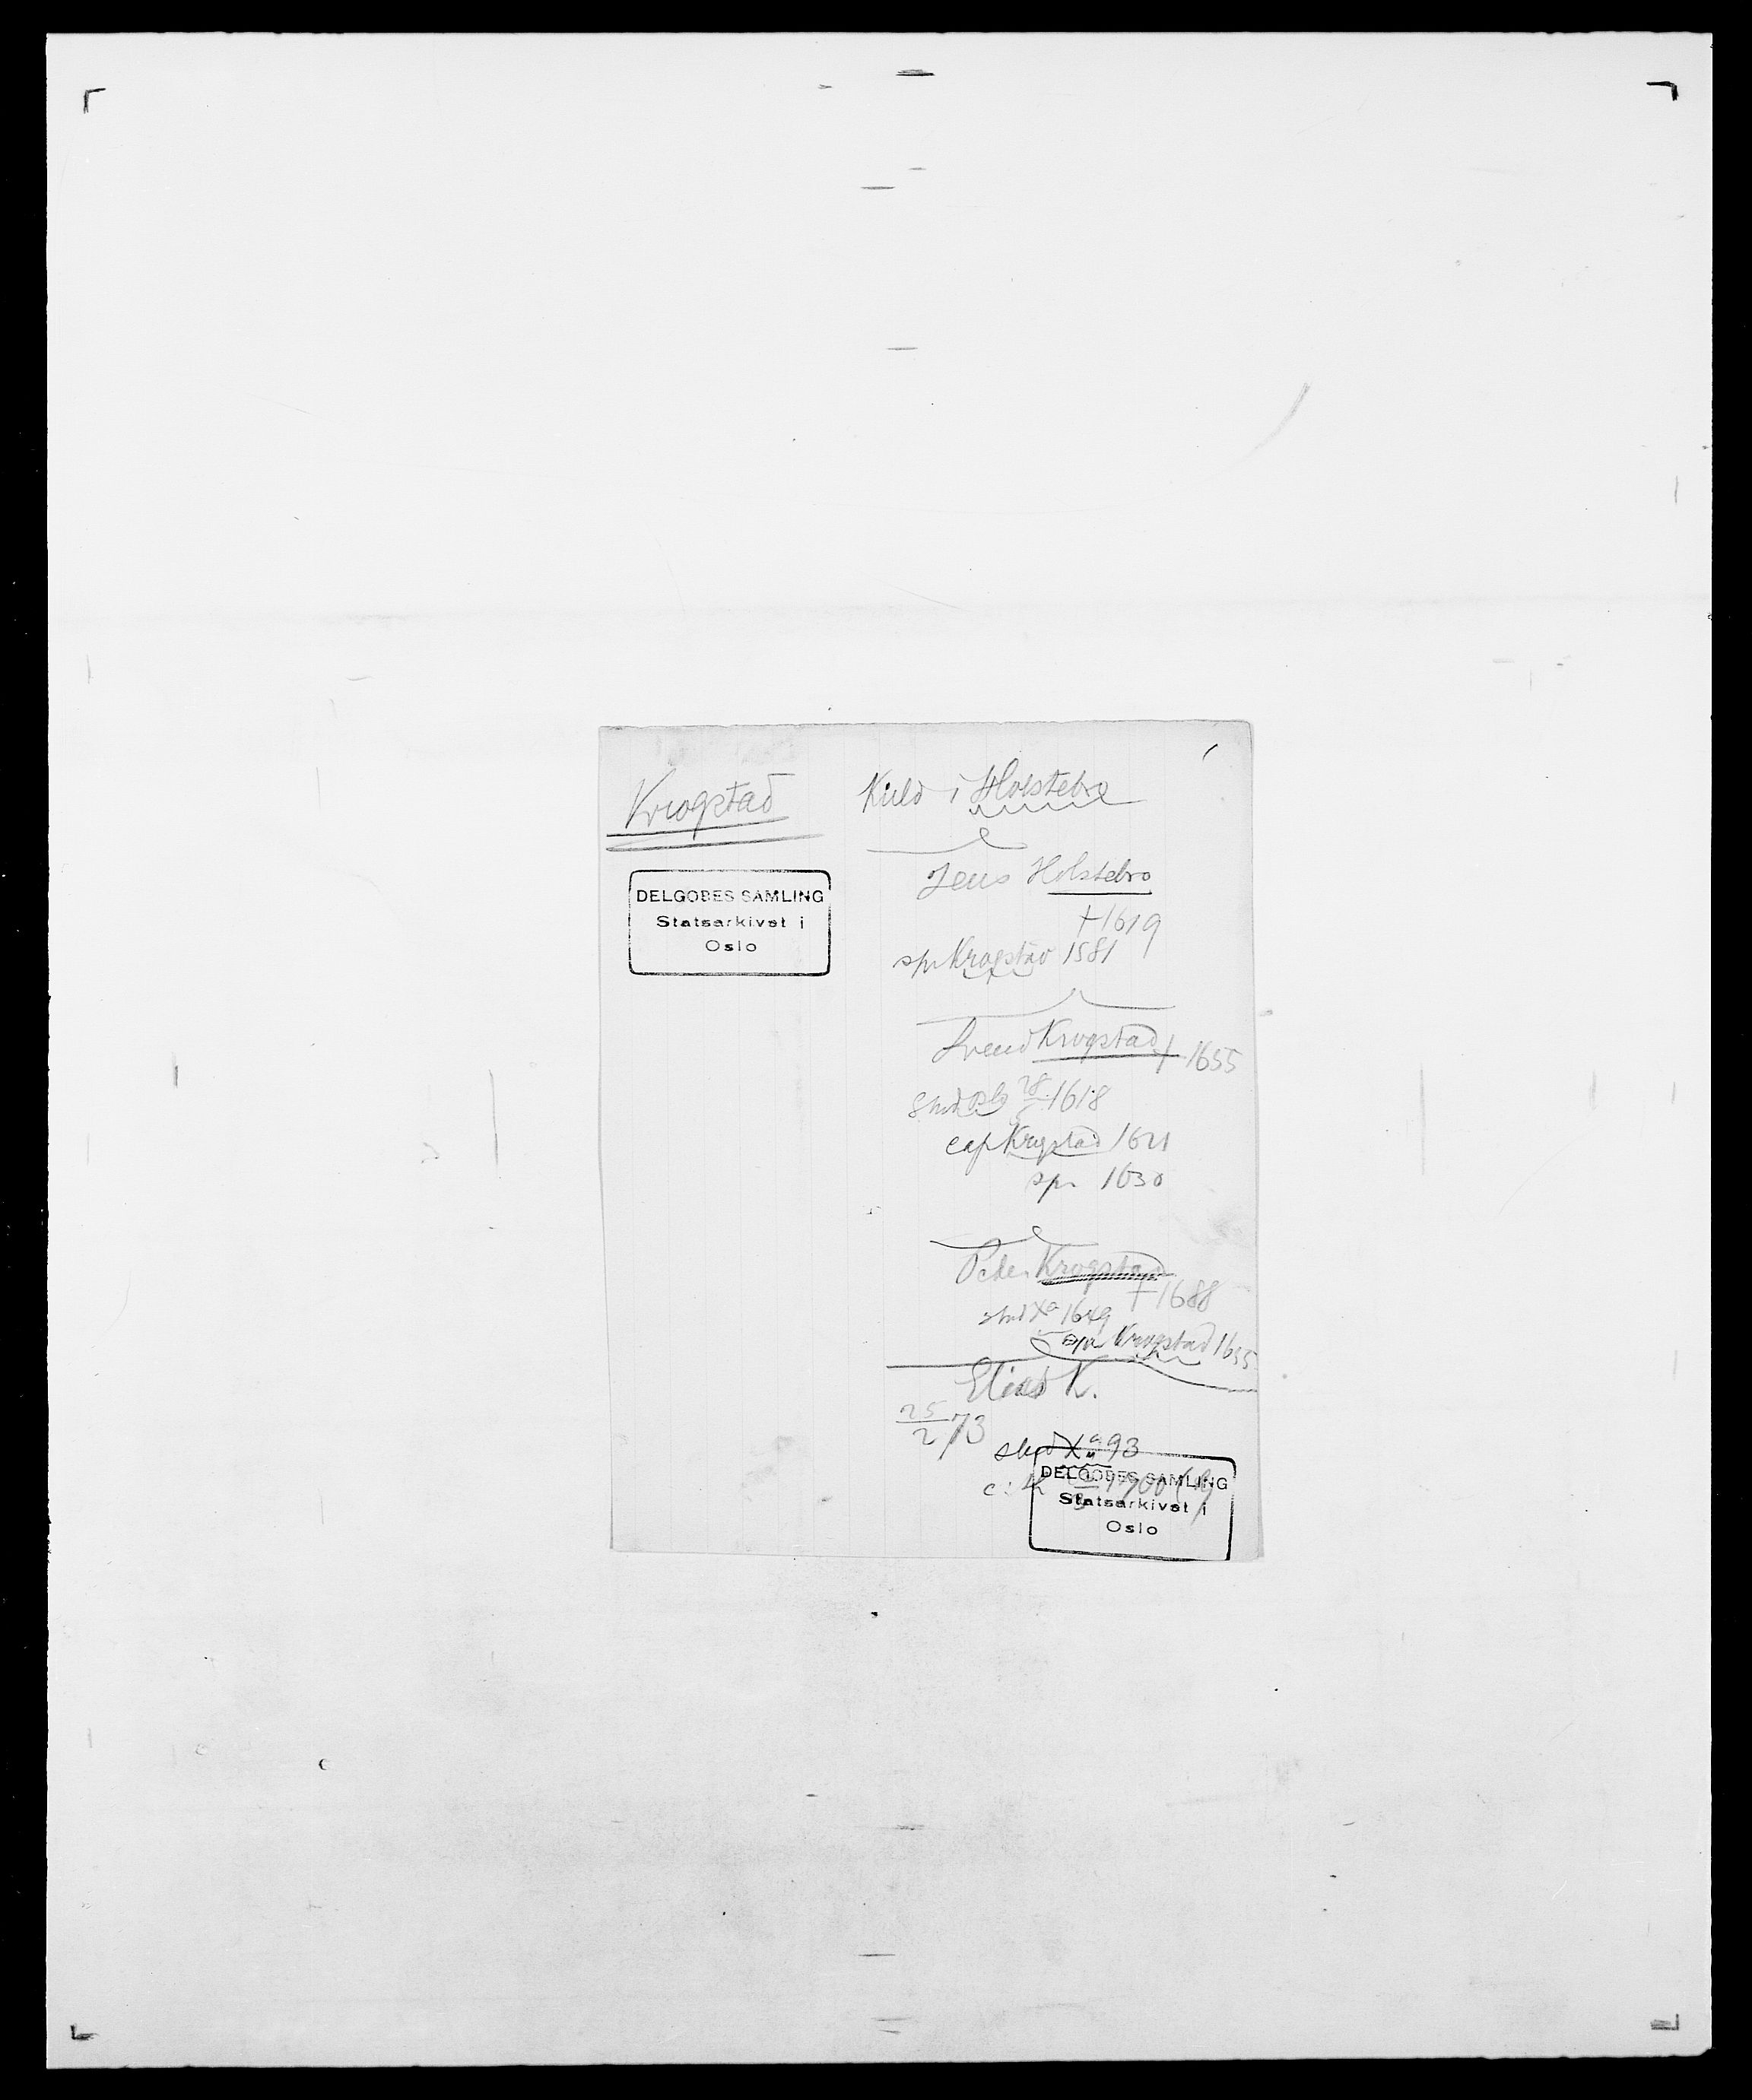 Krogstad
Kield i Holstebro
DELGOBES SAMLING
Statsarkivet i
Oslo
Jens Holstebro
†1619
spr Krogstad 1581
Svend Krogstad † 1655
28 1618
cap Krogstad 1621
spr 1630
Peder Krogstad
†1688
stud Xa 1649
spr Krogstad 1655
Elias K.
25/2 73
stud Xa 93
DELGOBES SAMLING
Statsarkivet i
Oslo